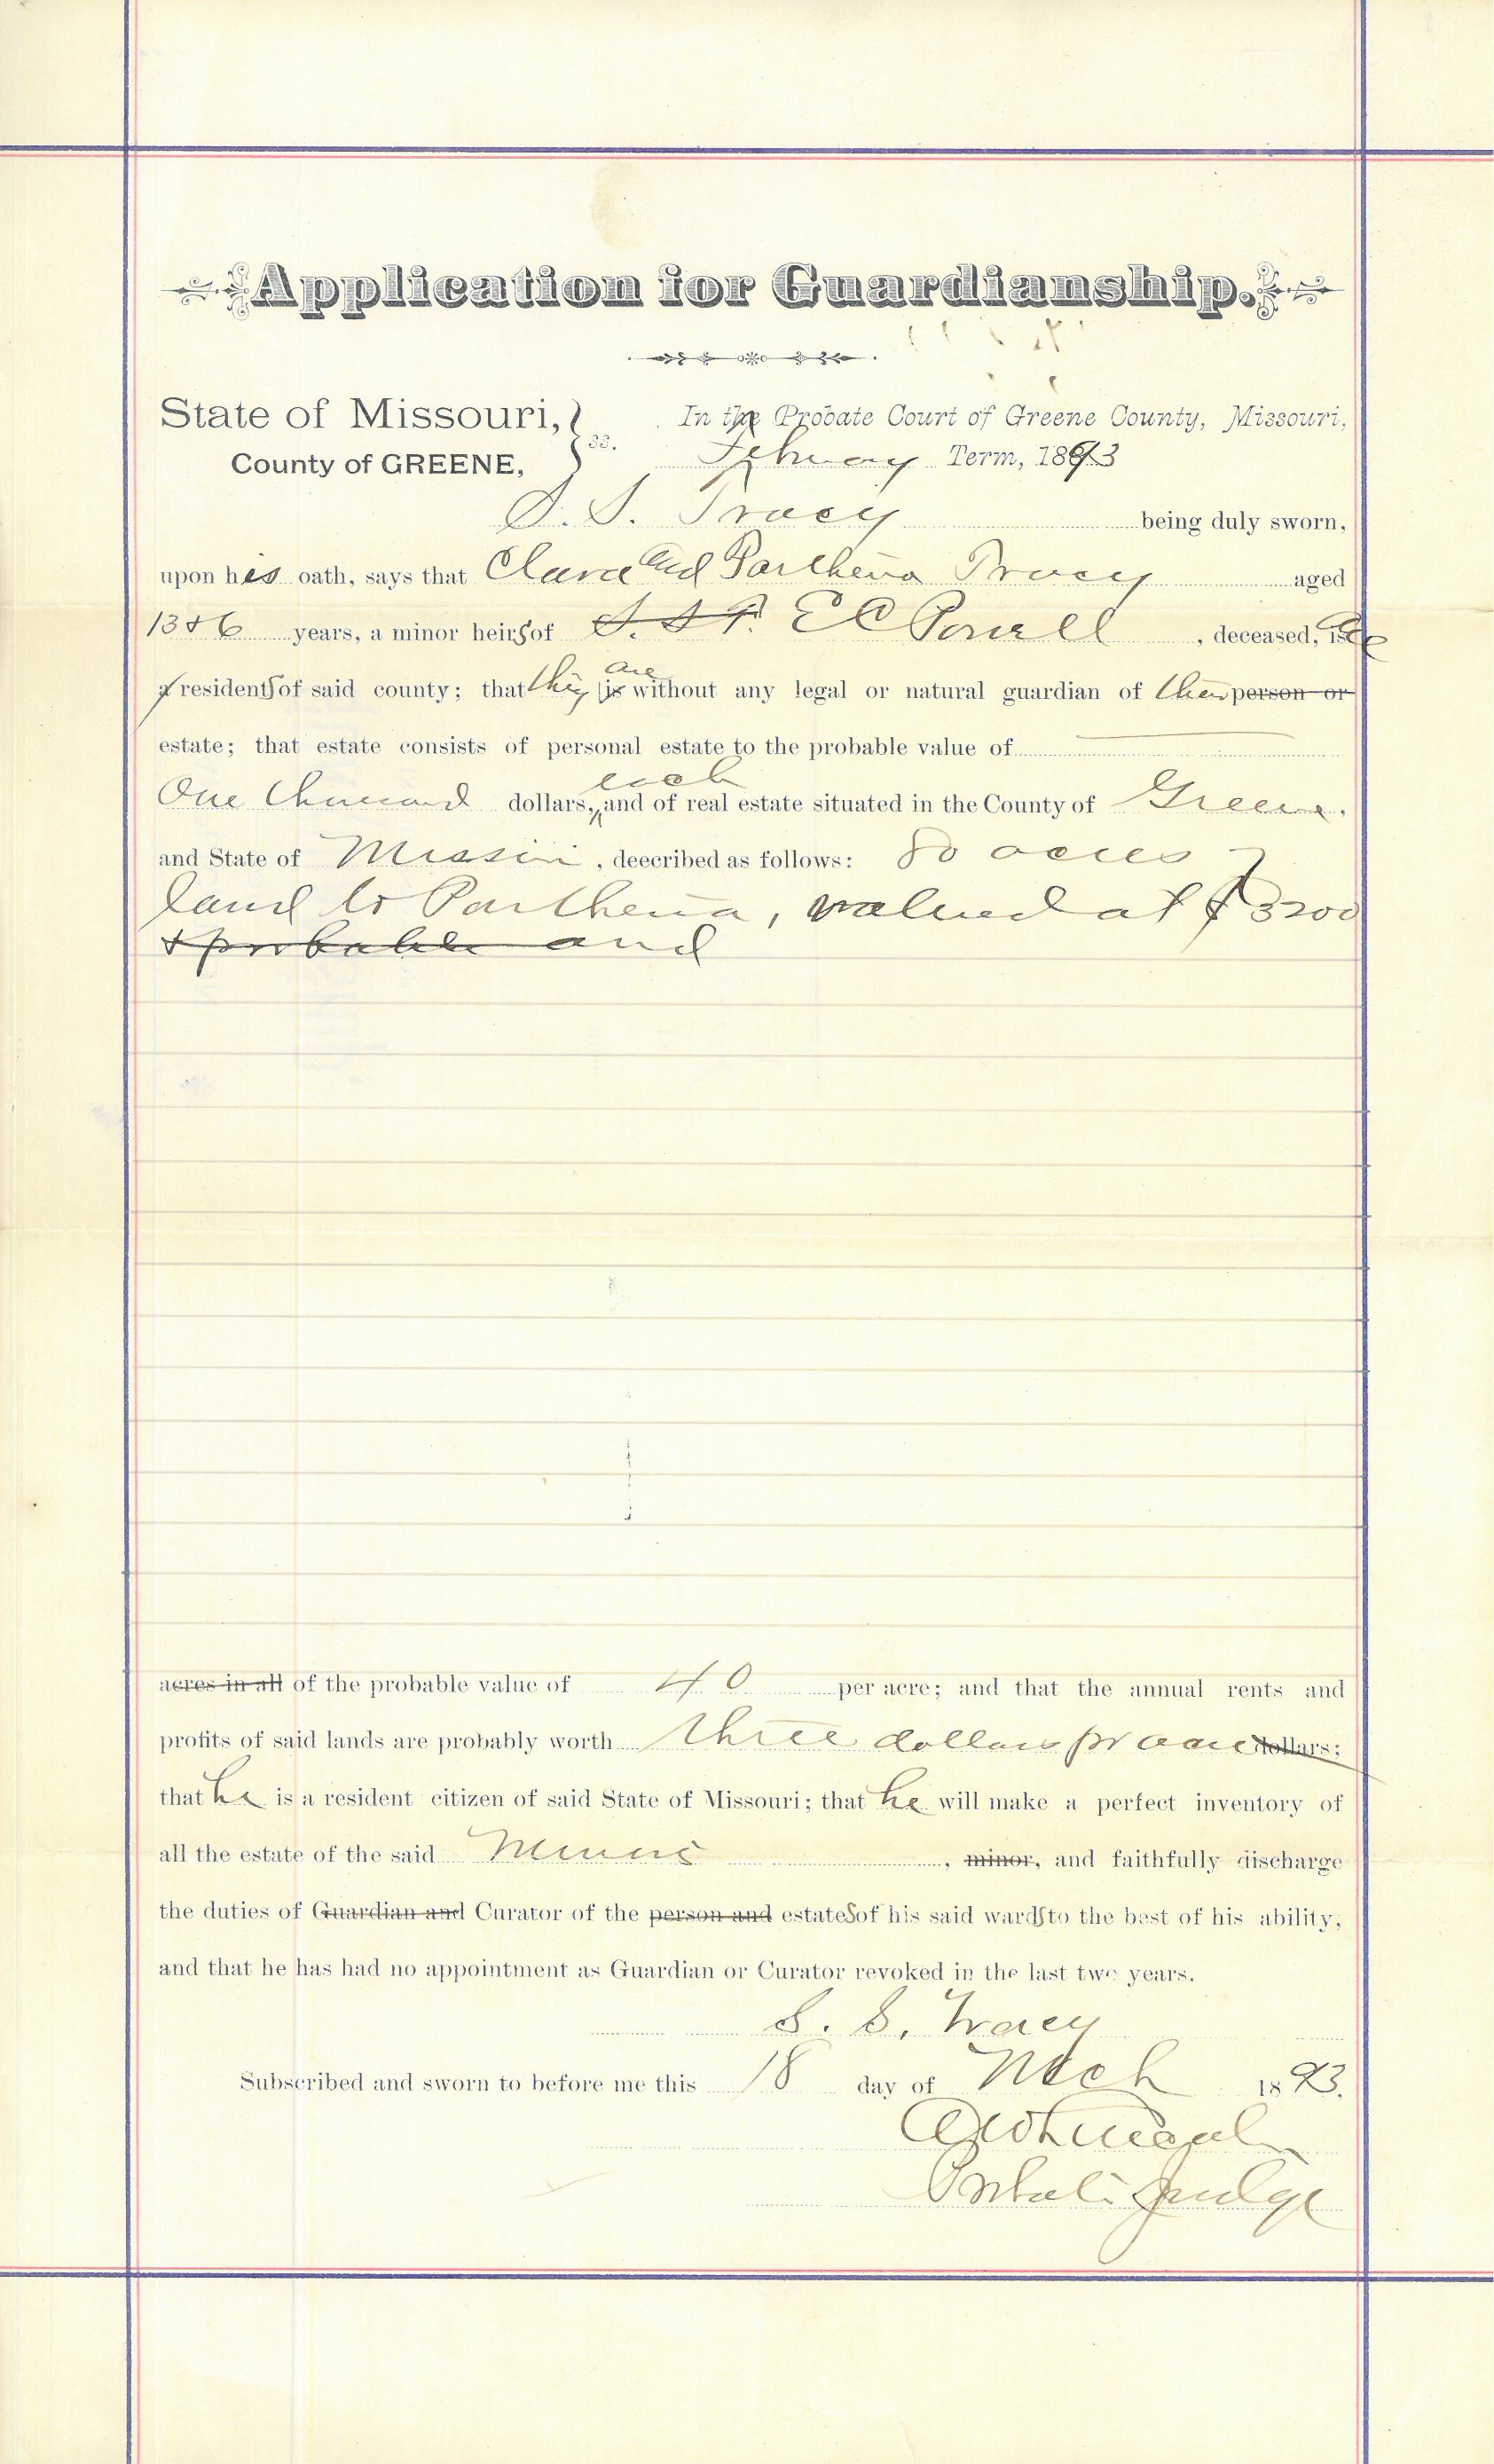 Application for Guardianship.
State of Missouri,
County of GREENE,
ss.
In the Probate Court of Greene County, Missouri,
February Term, 1893
S. S. Tracy being duly sworn,
upon his oath, says that Clara and Parthena Tracy aged
13 & 6 years, a minor heirs of E C Powell, deceased, is are
a residents of said county; that they is are without any legal or natural guardian of their person or
estate; that estate consists of personal estate to the probable value of
One thousand dollars, each and of real estate situated in the County of Greene,
and State of Missouri, deecribed as follows: 80 acres
land to Parthena, valued at $3200
& probable and
acres in all of the probable value of 40 per acre; and that the annual rents and
profits of said lands are probably worth three dollars pr acre dollars;
that he is a resident citizen of said State of Missouri; that he will make a perfect inventory of
all the estate of the said Minors, minor, and faithfully discharge
the duties of Guardian and Curator of the person and estates of his said wards to the best of his ability;
and that he has had no appointment as Guardian or Curator revoked in the last two years.
S. S. Tracy
Subscribed and sworn to before me this 18 day of Mch 1893.
Probate Judge